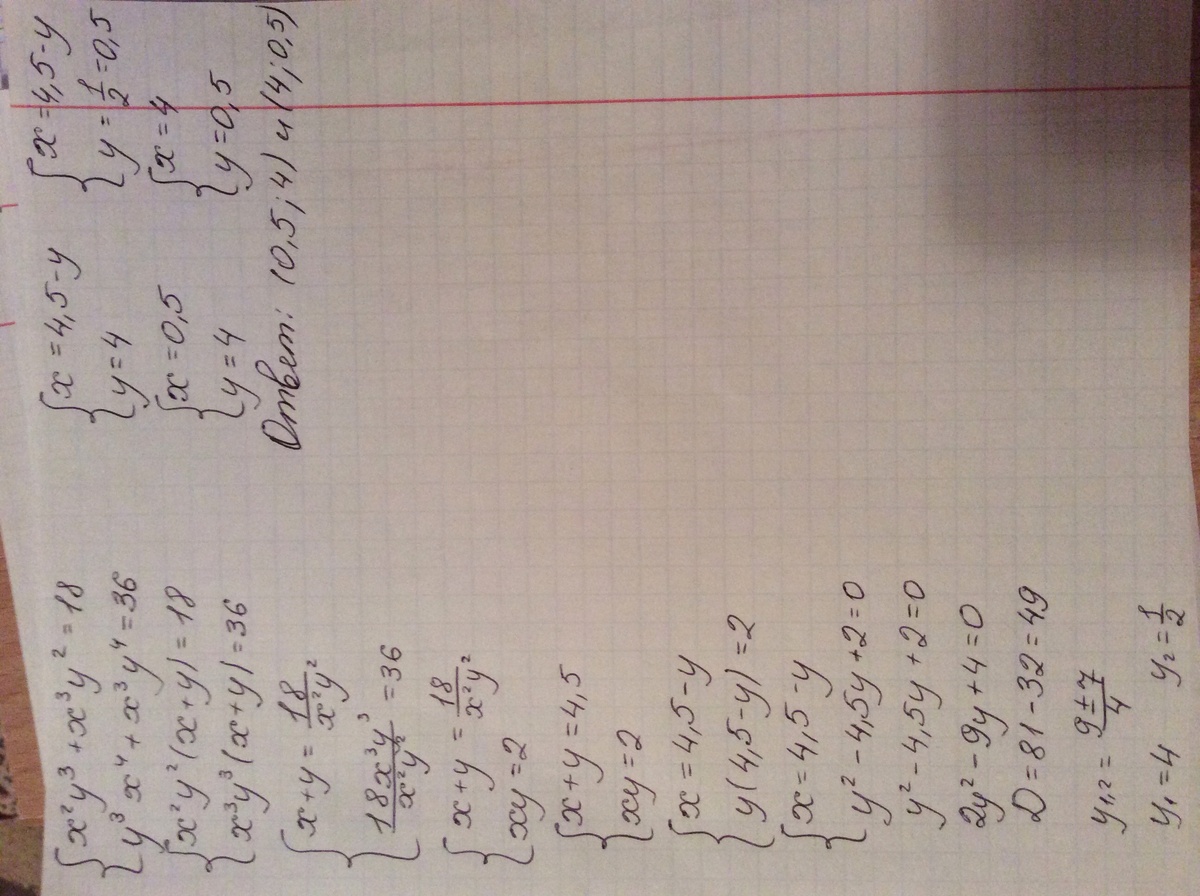 { x²y³ + x³y² = 18
{ y³x⁴ + x³y⁴ = 36
{ x²y²(x+y) = 18
{ x³y³(x+y) = 36
{ x+y = 18/x²y²
{ 18x³y³/x²y² = 36
{ x+y = 18/x²y²
{ xy = 2
{ x+y = 4,5
{ xy = 2
{ x = 4,5-y
{ y(4,5-y) = 2
{ x = 4,5-y
{ y² - 4,5y + 2 = 0
y² - 4,5y + 2 = 0
2y² - 9y + 4 = 0
D = 81 - 32 = 49
y₁,₂ = 9±7/4
y₁ = 4 y₂ = 1/2
{ x = 4,5-y
{ y = 4
{ x = 0,5
{ y = 4
{ x = 4,5-y
{ y = 1/2 = 0,5
{ x = 4
{ y = 0,5
Ответ: (0,5; 4) и (4; 0,5)